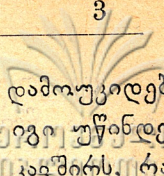 3
დამოუკიდებ
იგი უწინდე
კავშირს, რა